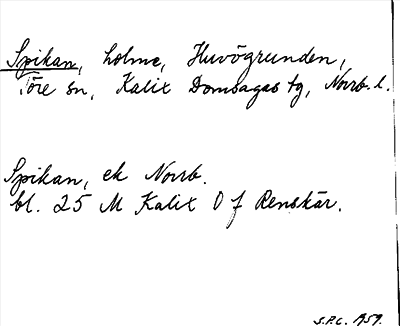 Spikan, holme, Huvögrunden,
Töre sn, Kalix Domsagas tg, Norrb. l.
Spikan, ek Norrb.
bl. 25 M Kalix O f Renskär.
S.P.C. 1959.